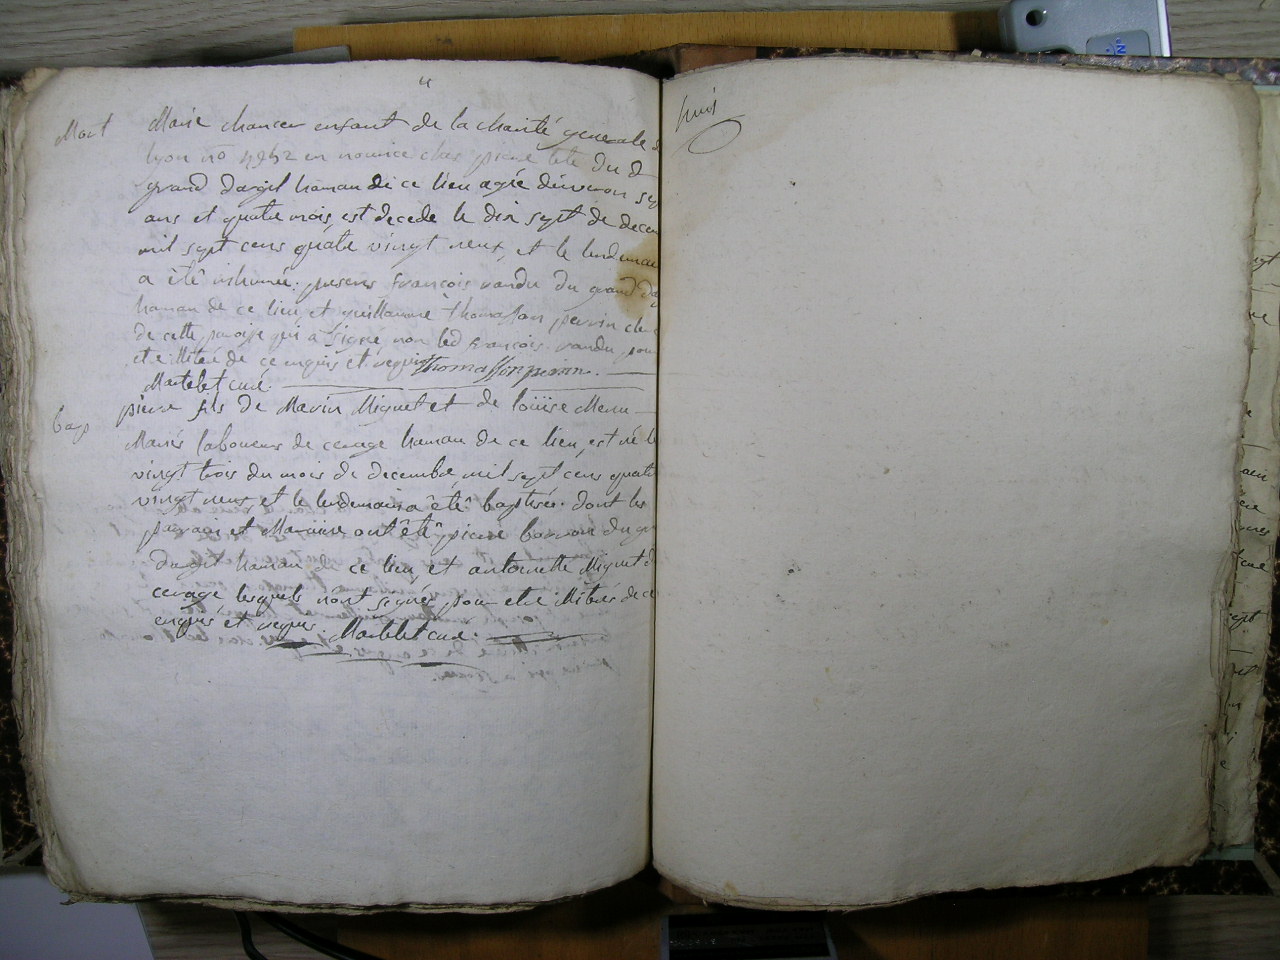 Mort
Marie chancer enfant de la charité generale
lyon no 4952 en nourice chez pierre du
grand dargil hamau de ce lieu agée denviron
ans et quatre mois est decede le dix sept de
mil sept cens quatre vingt neuf, et le lendemain
a été inhumée. presens francois vandu du grand
hamau de ce lieu, et guillaume thomasson perrin
de cette paroisse qui a signé non led francois vandu pour
etre illiteré de ce enquis et requis Thomasson perrin.
Martelet curé.
bap
pierre fils de Marin Miguet et de loüise Menu
Mariés laboureurs de cevage hamau de ce lieu, est né le
vingt trois du mois de decembre mil sept cens quatre
vingt neuf, et le lendemain a été baptisé. dont les
parrain et Maraine ont été pierre du
dargil hamau de ce lieu, et antoinette Miguet
cevage lesquels n'ont signés pour etre illiterés de ce
enquis et requis Martelet curé.